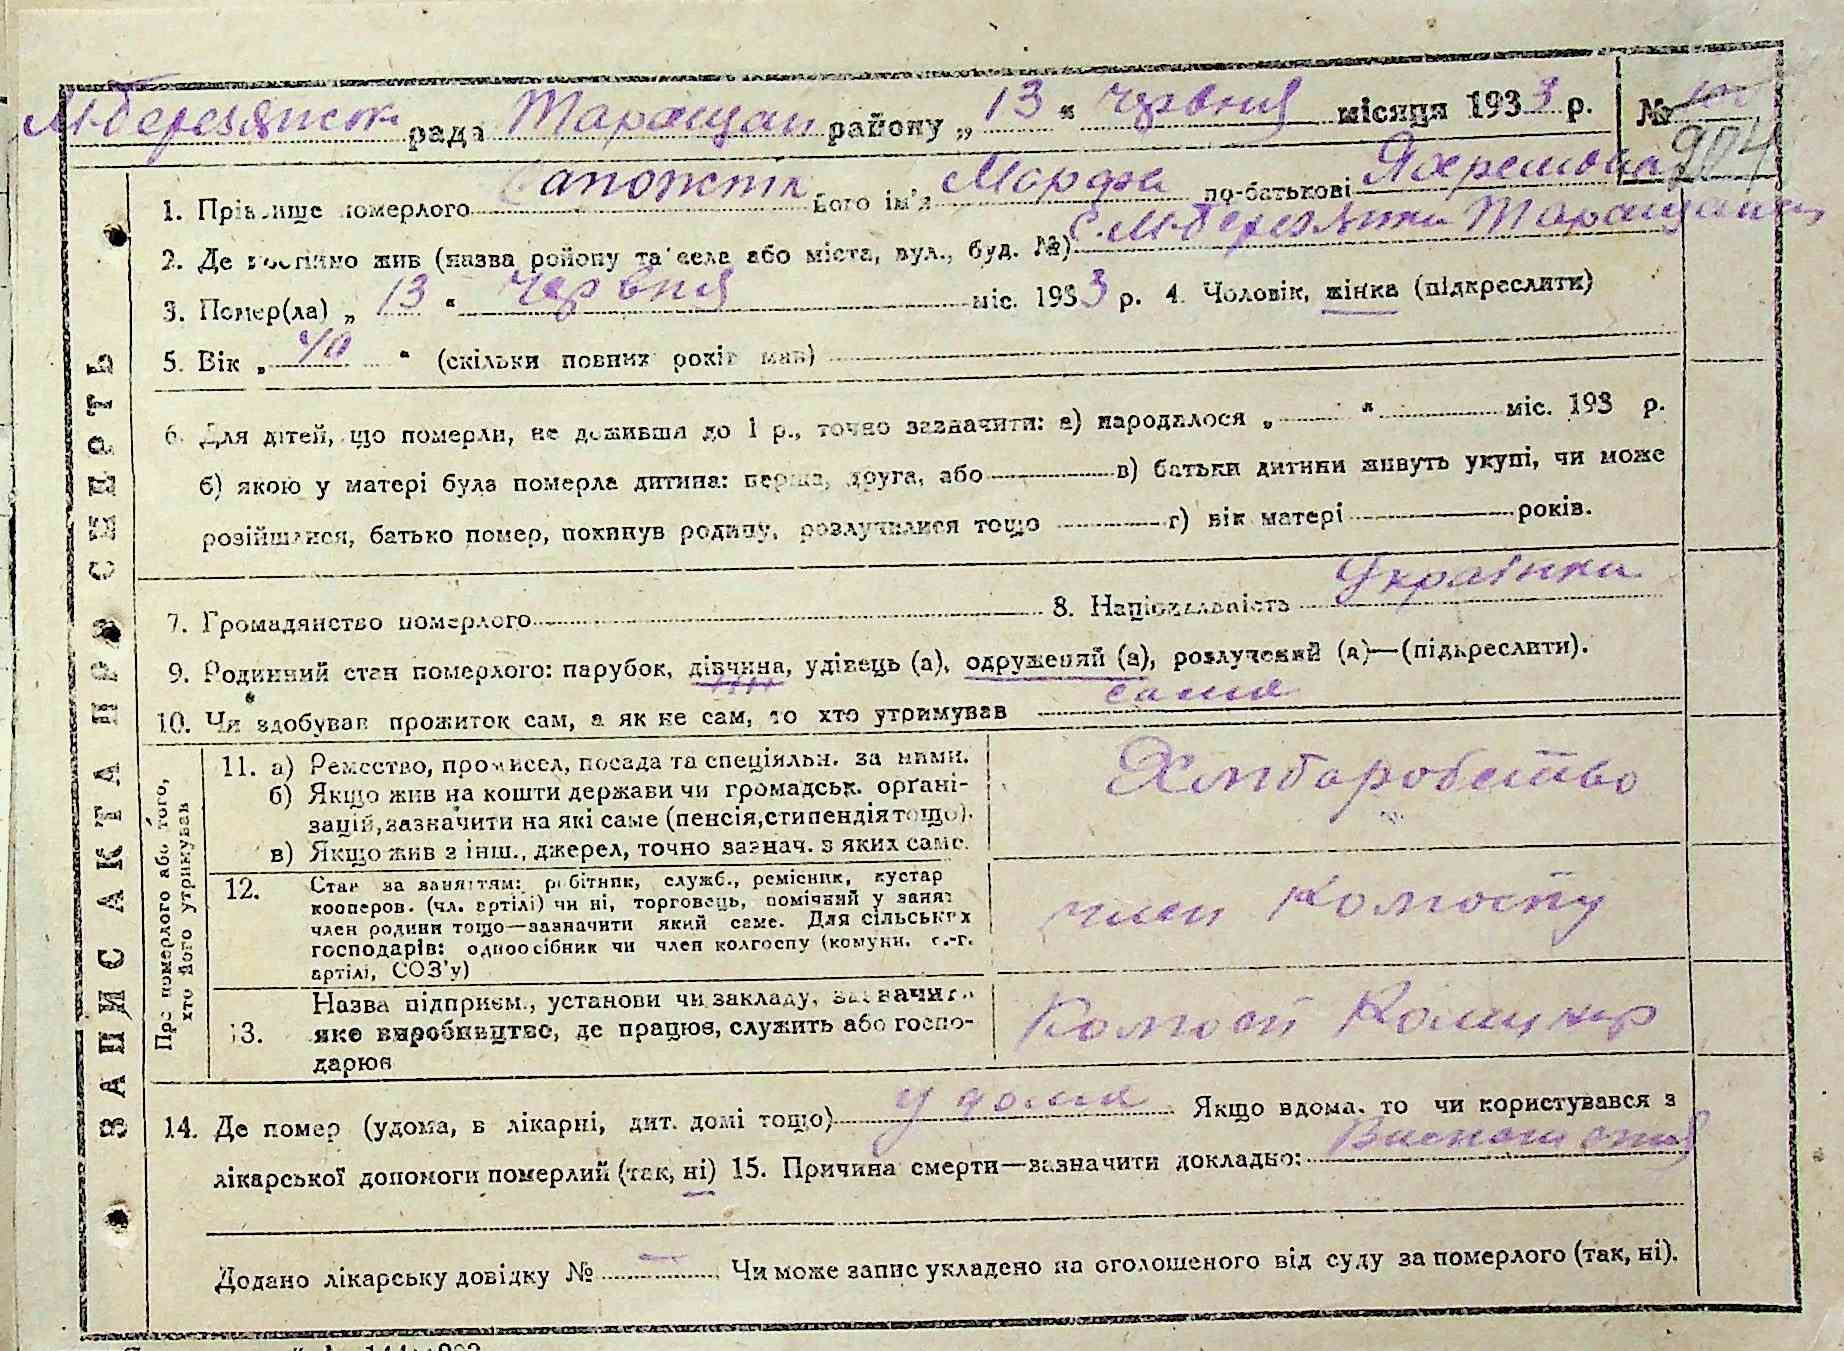 М-Березянськ рада Таращан району „ 13 “ червня місяця 1933 р. № 904
1. Прізвище померлого Сапожнік його ім'я Марфа по-батькові
2. Де постійно жив (назва району та села або міста, вул., буд. №) с. М-Березянка Таращанськ
3. Помер(ла) „ 13 “ червня міс. 1933 р. 4. Чоловік, жінка (підкреслити)
5. Вік „ 40 “ (скільки повних років мав)
6. Для дітей, що померли, не доживши до 1 р., точно зазначити: а) народилося „ “ міс. 193 р.
б) якою у матері була померла дитина: перша, друга, або в) батьки дитини живуть укупі, чи може
розійшлися, батько помер, покинув родину, розлучилися тощо г) вік матері років.
7. Громадянство померлого 8. Національність Українка
9. Родинний стан померлого: парубок, дівчина, удівець (а), одружений (а), розлучений (а)—(підкреслити).
10. Чи здобував прожиток сам, а як не сам, то хто утримував сама
ЗАПИС АКТА ПРО СМЕРТЬ
Про померлого або того,
хто його утримував
11. а) Ремество, промисел, посада та спеціяльн. за ними.
б) Якщо жив на кошти держави чи громадськ. органі-
зацій, зазначити на які саме (пенсія, стипендія тощо).
в) Якщо жив з інш., джерел, точно зазнач. з яких саме.
Хліборобство
12. Стан за заняттям: робітник, служб., ремісник, кустар
кооперов. (чл. артілі) чи ні, торговець, помічний у занят
член родини тощо—зазначити який саме. Для сільських
господарів: одноосібник чи член колгоспу (комуни, с.-г.
артілі, СОЗ'у)
член Колгоспу
13. Назва підприєм., установи чи закладу, зазначити
яке виробництво, де працює, служить або госпо-
дарює
Колгосп Комунар
14. Де помер (удома, в лікарні, дит. домі тощо) у дома Якщо вдома, то чи користувався з
лікарської допомоги померлий (так, ні) 15. Причина смерти—зазначити докладно: Виснаження
Додано лікарську довідку № — Чи може запис укладено на оголошеного від суду за померлого (так, ні).